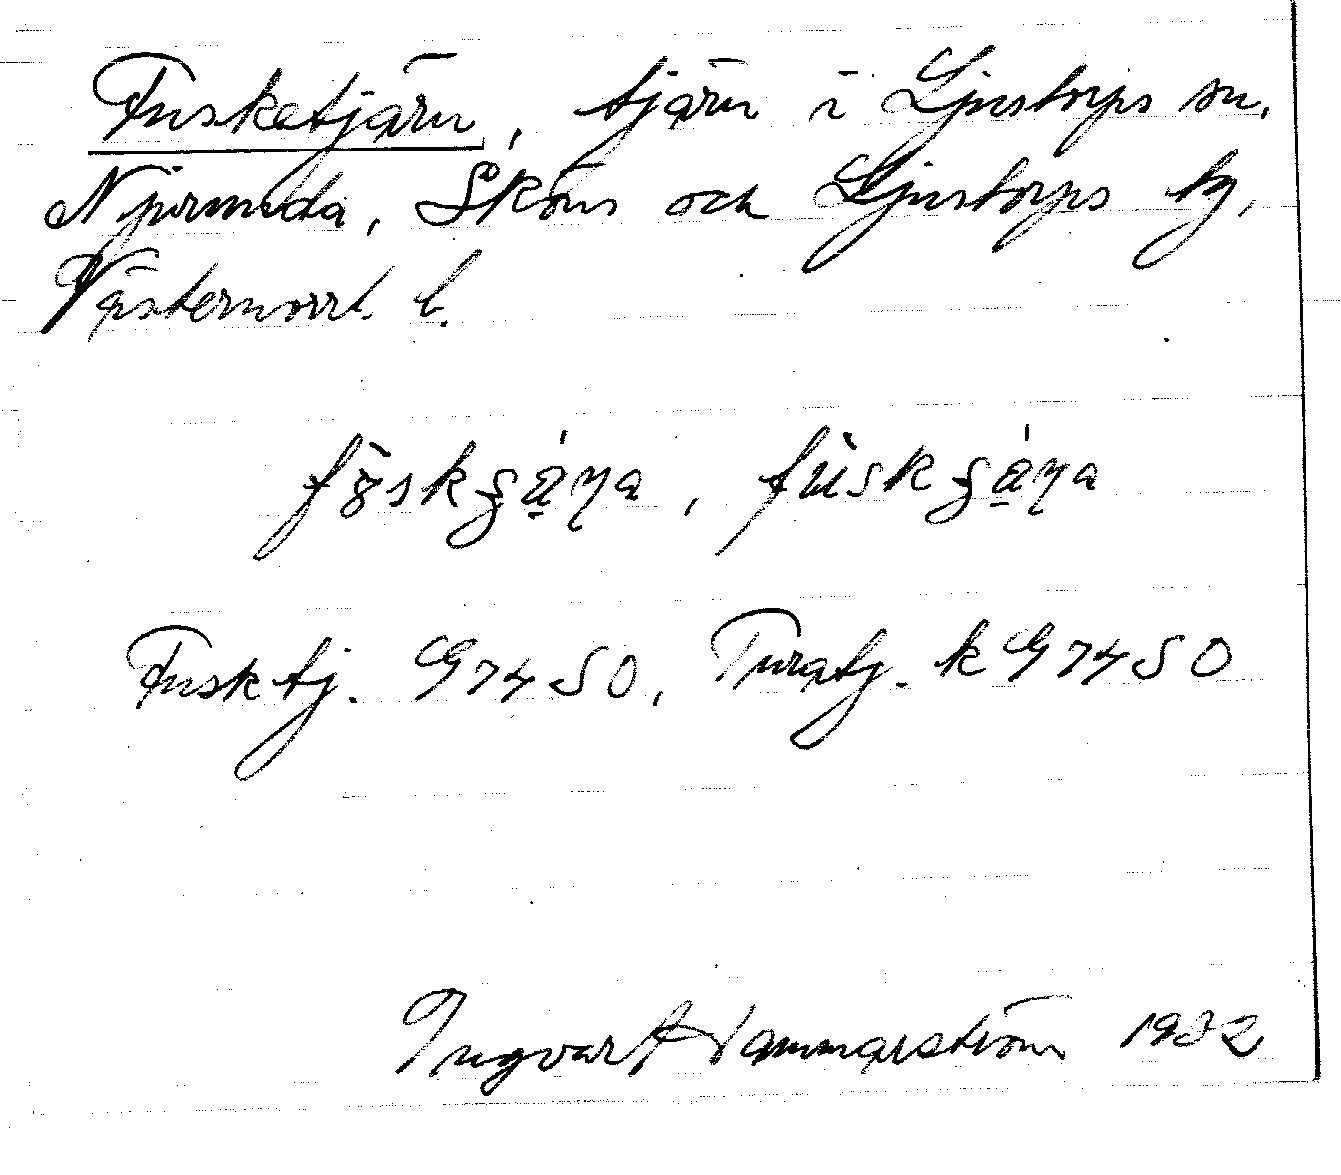 Fusketjärn, tjärn i Ljustorps sn.
Njurunda, Sköns och Ljustorps tg,
Västernorrl. l.
Fusktj. G7450, Turatj. k G7450
Ingvar Hammarström 1932